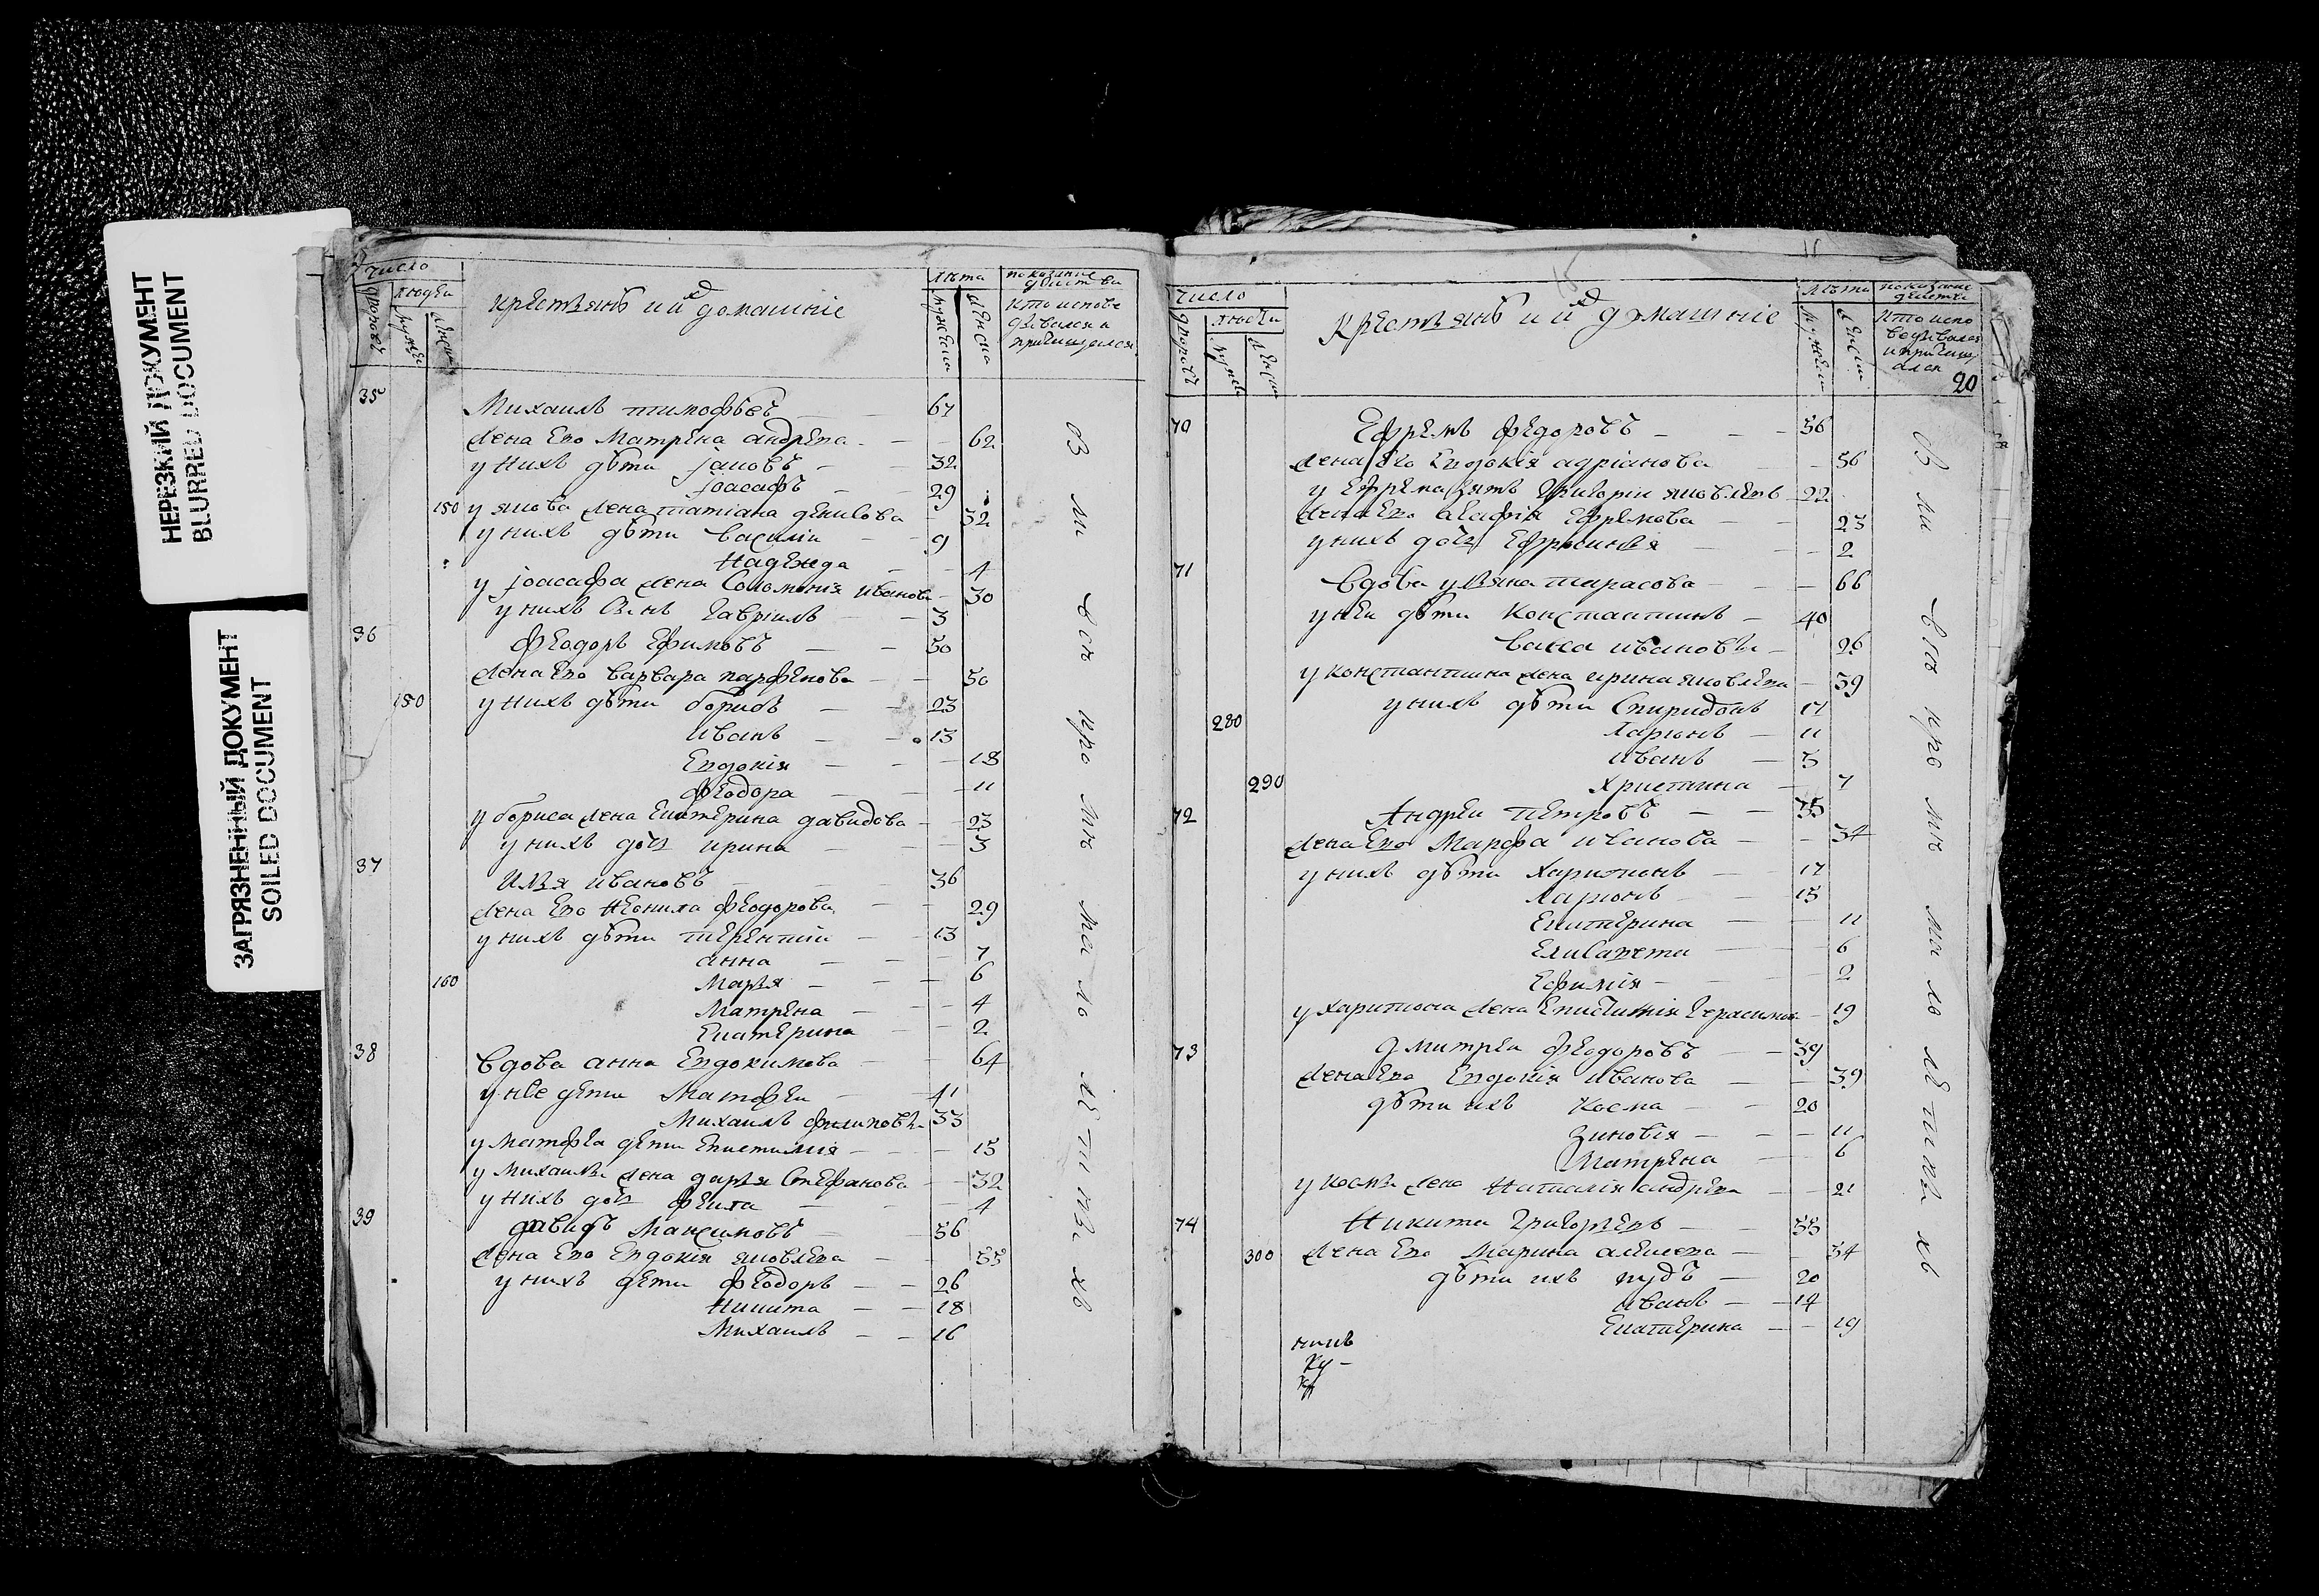 НЕРЕЗКИЙ ДОКУМЕНТ
BLURRED DOCUMENT
ЗАГРЯЗНЕННЫЙ ДОКУМЕНТ
SOILED DOCUMENT
число
людеи
крестьянъ и ихъ домашніе
лѣта
показаніе действа
кто испове
дывался и
причащался
35
Михаилъ тимофѣевъ 67
жена его Матрена андрѣева 62
у нихъ дѣти Іаковъ 32
Іоасафъ 29
150 у якова жена татіана денисова 32
у нихъ дѣти василіи 9
Надежда 4
у Іоасафа жена Соломонія иванова 30
у нихъ сынъ Гавріилъ 3
36 Феодоръ Ефимовъ 50
жена его варвара парфенова 50
150 у нихъ дѣти борисъ 23
иванъ 13
Евдокія 18
феодора 11
у бориса жена Екатерина давидова 23
у нихъ дочь ирина 3
37 Илья ивановъ 36
жена его Неонила феодорова 29
у нихъ дѣти терентіи 13
анна 7
160 Марья 6
Матрена 4
Екатерина 2
38 вдова анна Евдокимова 64
у нее дети Матфеи 41
Михаилъ филиповы 33
у матфеа дети Епистимія 15
у михаилы жена дарья Стефанова 32
у нихъ дочь фекла 4
39 давидъ Максимовъ 56
жена Его Евдокія яковлева 55
у нихъ дети феодоръ 26
Никита 18
Михаилъ 16
число
людеи
крестьянъ и ихъ домашніе
лѣта
показаніе действа
кто испо
ведывался
и причащ
ался
20
70 Ефремъ федоровъ 56
жена его Евдокія адріанова 56
у Ефрема зять Григоріи яковлевъ 22
жена его агафія Ефремова 23
у нихъ дочь Ефросинья 2
71 вдова ульяна тарасова 66
у неи дѣти Константинъ 40
васса ивановы 26
у константина жена ирина яковлева 39
у нихъ дѣти Спиридонъ 17
280 Ларіонъ 11
иванъ 3
290 Христина 7
72 Андреи петровъ 35
жена его Марфа иванова 34
у нихъ дѣти Харитонъ 17
ларіонъ 15
Екатерина 11
Елисавета 6
Ефимія 2
у харитона жена Епистимія Герасимова 19
73 дмитреи феодоровъ 39
жена его Евдокія иванова 39
дѣти ихъ Косма 20
Зиновія 11
Матрена 6
у космы жена Наталія андрева 21
74 Никита Григорьевъ 35
300 жена его Марина алексева 34
дѣти ихъ пудъ 20
иванъ 14
Екатерина 19